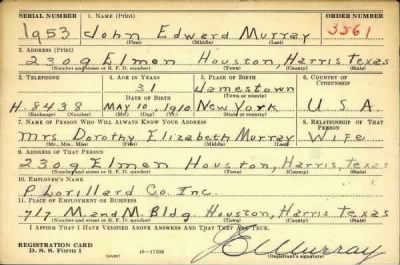 SERIAL NUMBER 1. NAME (Print) ORDER NUMBER
1953 John Edward Murray 3561
(First) (Middle) (Last)
2. ADDRESS (Print)
2309 Elmen Houston, Harris Texas
(Number and street or R. F. D. number) (Town) (County) (State)
3. TELEPHONE 4. AGE IN YEARS 5. PLACE OF BIRTH 6. COUNTRY OF CITIZENSHIP
31 Jamestown
DATE OF BIRTH (Town or county)
H. 8438 May 10, 1910. New York U S A
(Exchange) (Number) (Mo.) (Day) (Yr.) (State or country)
7. NAME OF PERSON WHO WILL ALWAYS KNOW YOUR ADDRESS 8. RELATIONSHIP OF THAT PERSON
Mrs Dorothy Elizabeth Murray Wife
(Mr., Mrs., Miss) (First) (Middle) (Last)
9. ADDRESS OF THAT PERSON
2309 Elmen Houston, Harris, Texas
(Number and street or R. F. D. number) (Town) (County) (State)
10. EMPLOYER'S NAME
P. Lorillard Co. Inc.
11. PLACE OF EMPLOYMENT OR BUSINESS
717 M. and M. Bldg. Houston, Harris Texas
(Number and street or R. F. D. number) (Town) (County) (State)
I AFFIRM THAT I HAVE VERIFIED ABOVE ANSWERS AND THAT THEY ARE TRUE.
REGISTRATION CARD
D. S. S. Form 1 (over) 16—17105 J E Murray